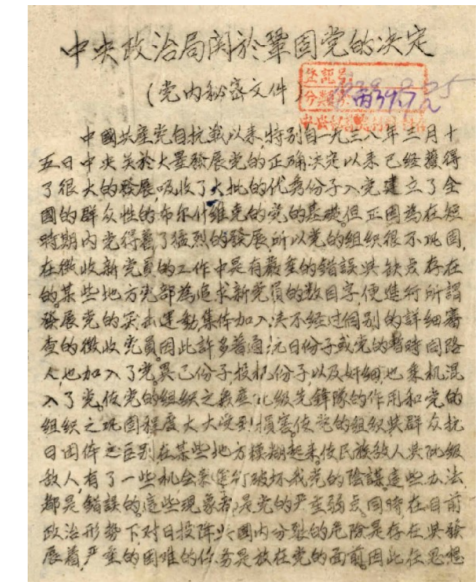 中央政治局関於鞏固党的决定
(党内秘密文件)
登記号
分類号 丙3917
中國共產党自抗战以来,特别自一九三八年三月十
五日中央关於大量發展党的正确决定以来已經獲得
了很大的發展,吸收了大批的优秀份子入党,建立了全
國的群众性的布尔什維克的党的基礎,但正因為在短
時期内党得着了猛烈的發展,所以党的组织很不巩固,
在徵收新党員的工作中是有嚴重的錯誤與缺点存在
的某些地方党部為追求新党員的数目字,便進行所謂
發展党的突击運動,集体加入,決不經过個别的詳細審
查的徵收党員因此許多普通抗日份子或党的暫時同路
人,也加入了党異己份子投机份子以及奸細,也乘机混
入了党,使党的组织之無產阶级先鋒隊的作用和党的
组织之巩固程度大大受到損害,使党的组织與群众抗
日团体之區别在某些地方模糊起来,使民族敌人與阶级
敌人,有了一些机会来進行破坏我党的陰謀,這些办法
都是錯誤的,這些現象都是党的严重弱点同時在目前
政治形勢下对日投降與國内分裂的危险是存在與發
展着,严重的困难的任务是放在党的面前,因此在思想